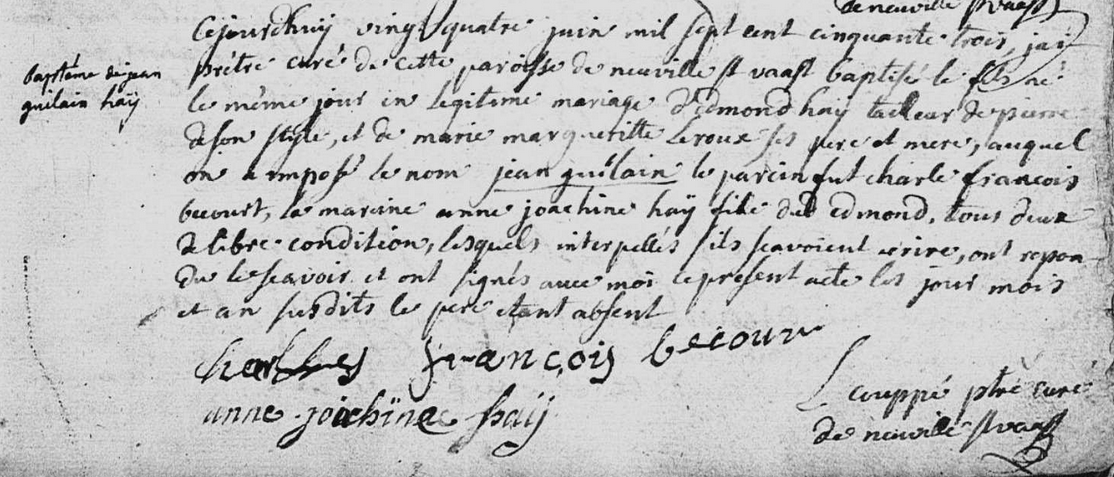 de neuville st vaast
Cejourdhuÿ vingt quatre juin mil sept cent cinquante trois, jai
baptéme de jean
guilain haÿ
prétre curé de cette paroisse de neuville st vaast baptisé le fils né
le méme jour en legitime mariage d'Edmond haÿ tailleur de pierre
de son style, et de marie margueritte Leroux ses pere et mere, auquel
on a imposé le nom jean guilain le parein fut charle françois
becourt, la mareine anne joachine haÿ fille dud edmond, tous deux
de libre condition, lesquels interpellés sils scavoient ecrire, ont repon
du le scavoir et ont signés avec moi le present acte les jour mois
et an susdits le pere etant absent
Charlles françois becour
anne joichine haÿ
L couppé ptre curé
de neuville st vaast